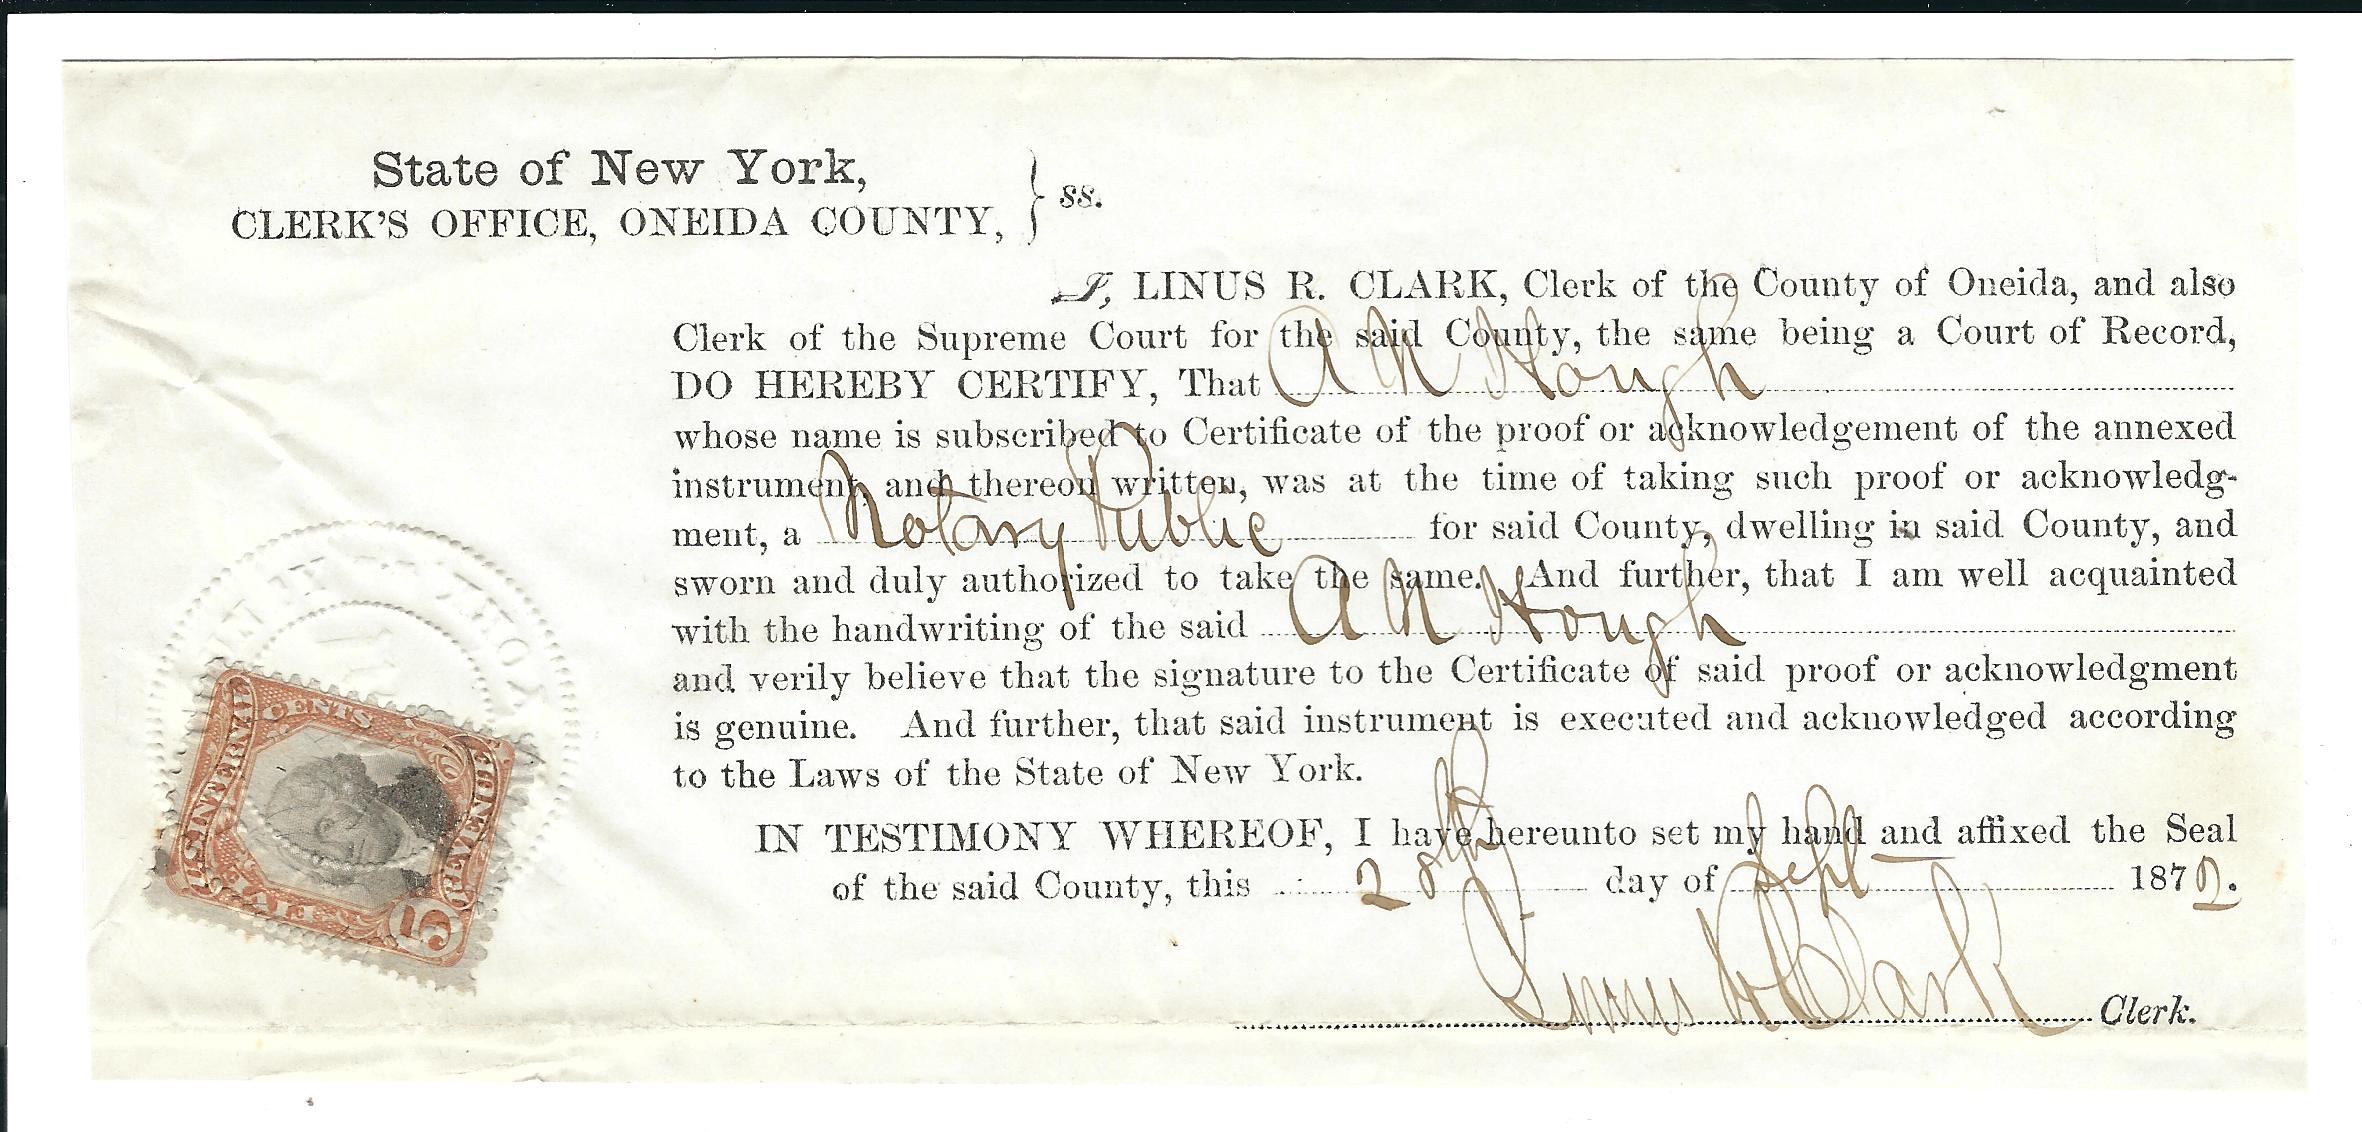 State of New York,
CLERK'S OFFICE, ONEIDA COUNTY, } ss.
I, LINUS R. CLARK, Clerk of the County of Oneida, and also
Clerk of the Supreme Court for the said County, the same being a Court of Record,
DO HEREBY CERTIFY, That A N Hough
whose name is subscribed to Certificate of the proof or acknowledgement of the annexed
instrument, and thereon written, was at the time of taking such proof or acknowledg-
ment, a Notary Public for said County, dwelling in said County, and
sworn and duly authorized to take the same. And further, that I am well acquainted
with the handwriting of the said A N Hough
and verily believe that the signature to the Certificate of said proof or acknowledgment
is genuine. And further, that said instrument is executed and acknowledged according
to the Laws of the State of New York.
IN TESTIMONY WHEREOF, I have hereunto set my hand and affixed the Seal
of the said County, this day of Sept 1872.
Linus R Clark Clerk.
CENTS
U.S. INTERNAL
REVENUE
5